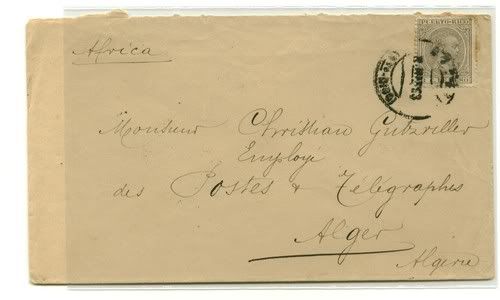 Africa
PUERTO-RICO
Monsieur Christian Gutzviller
Employé
des Postes & Télégraphes
Alger
Algérie